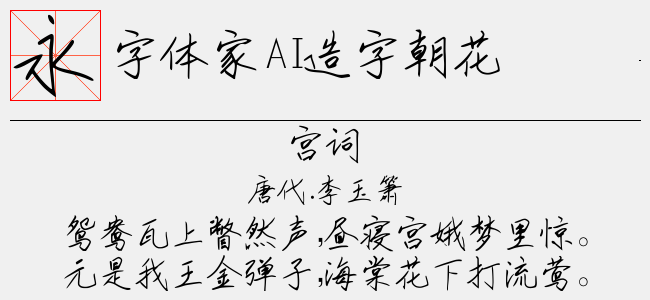 永
字体家AI造字朝花
宫词
唐代.李玉箫
鸳鸯瓦上瞥然声,昼寝宫娥梦里惊。
元是我王金弹子,海棠花下打流莺。